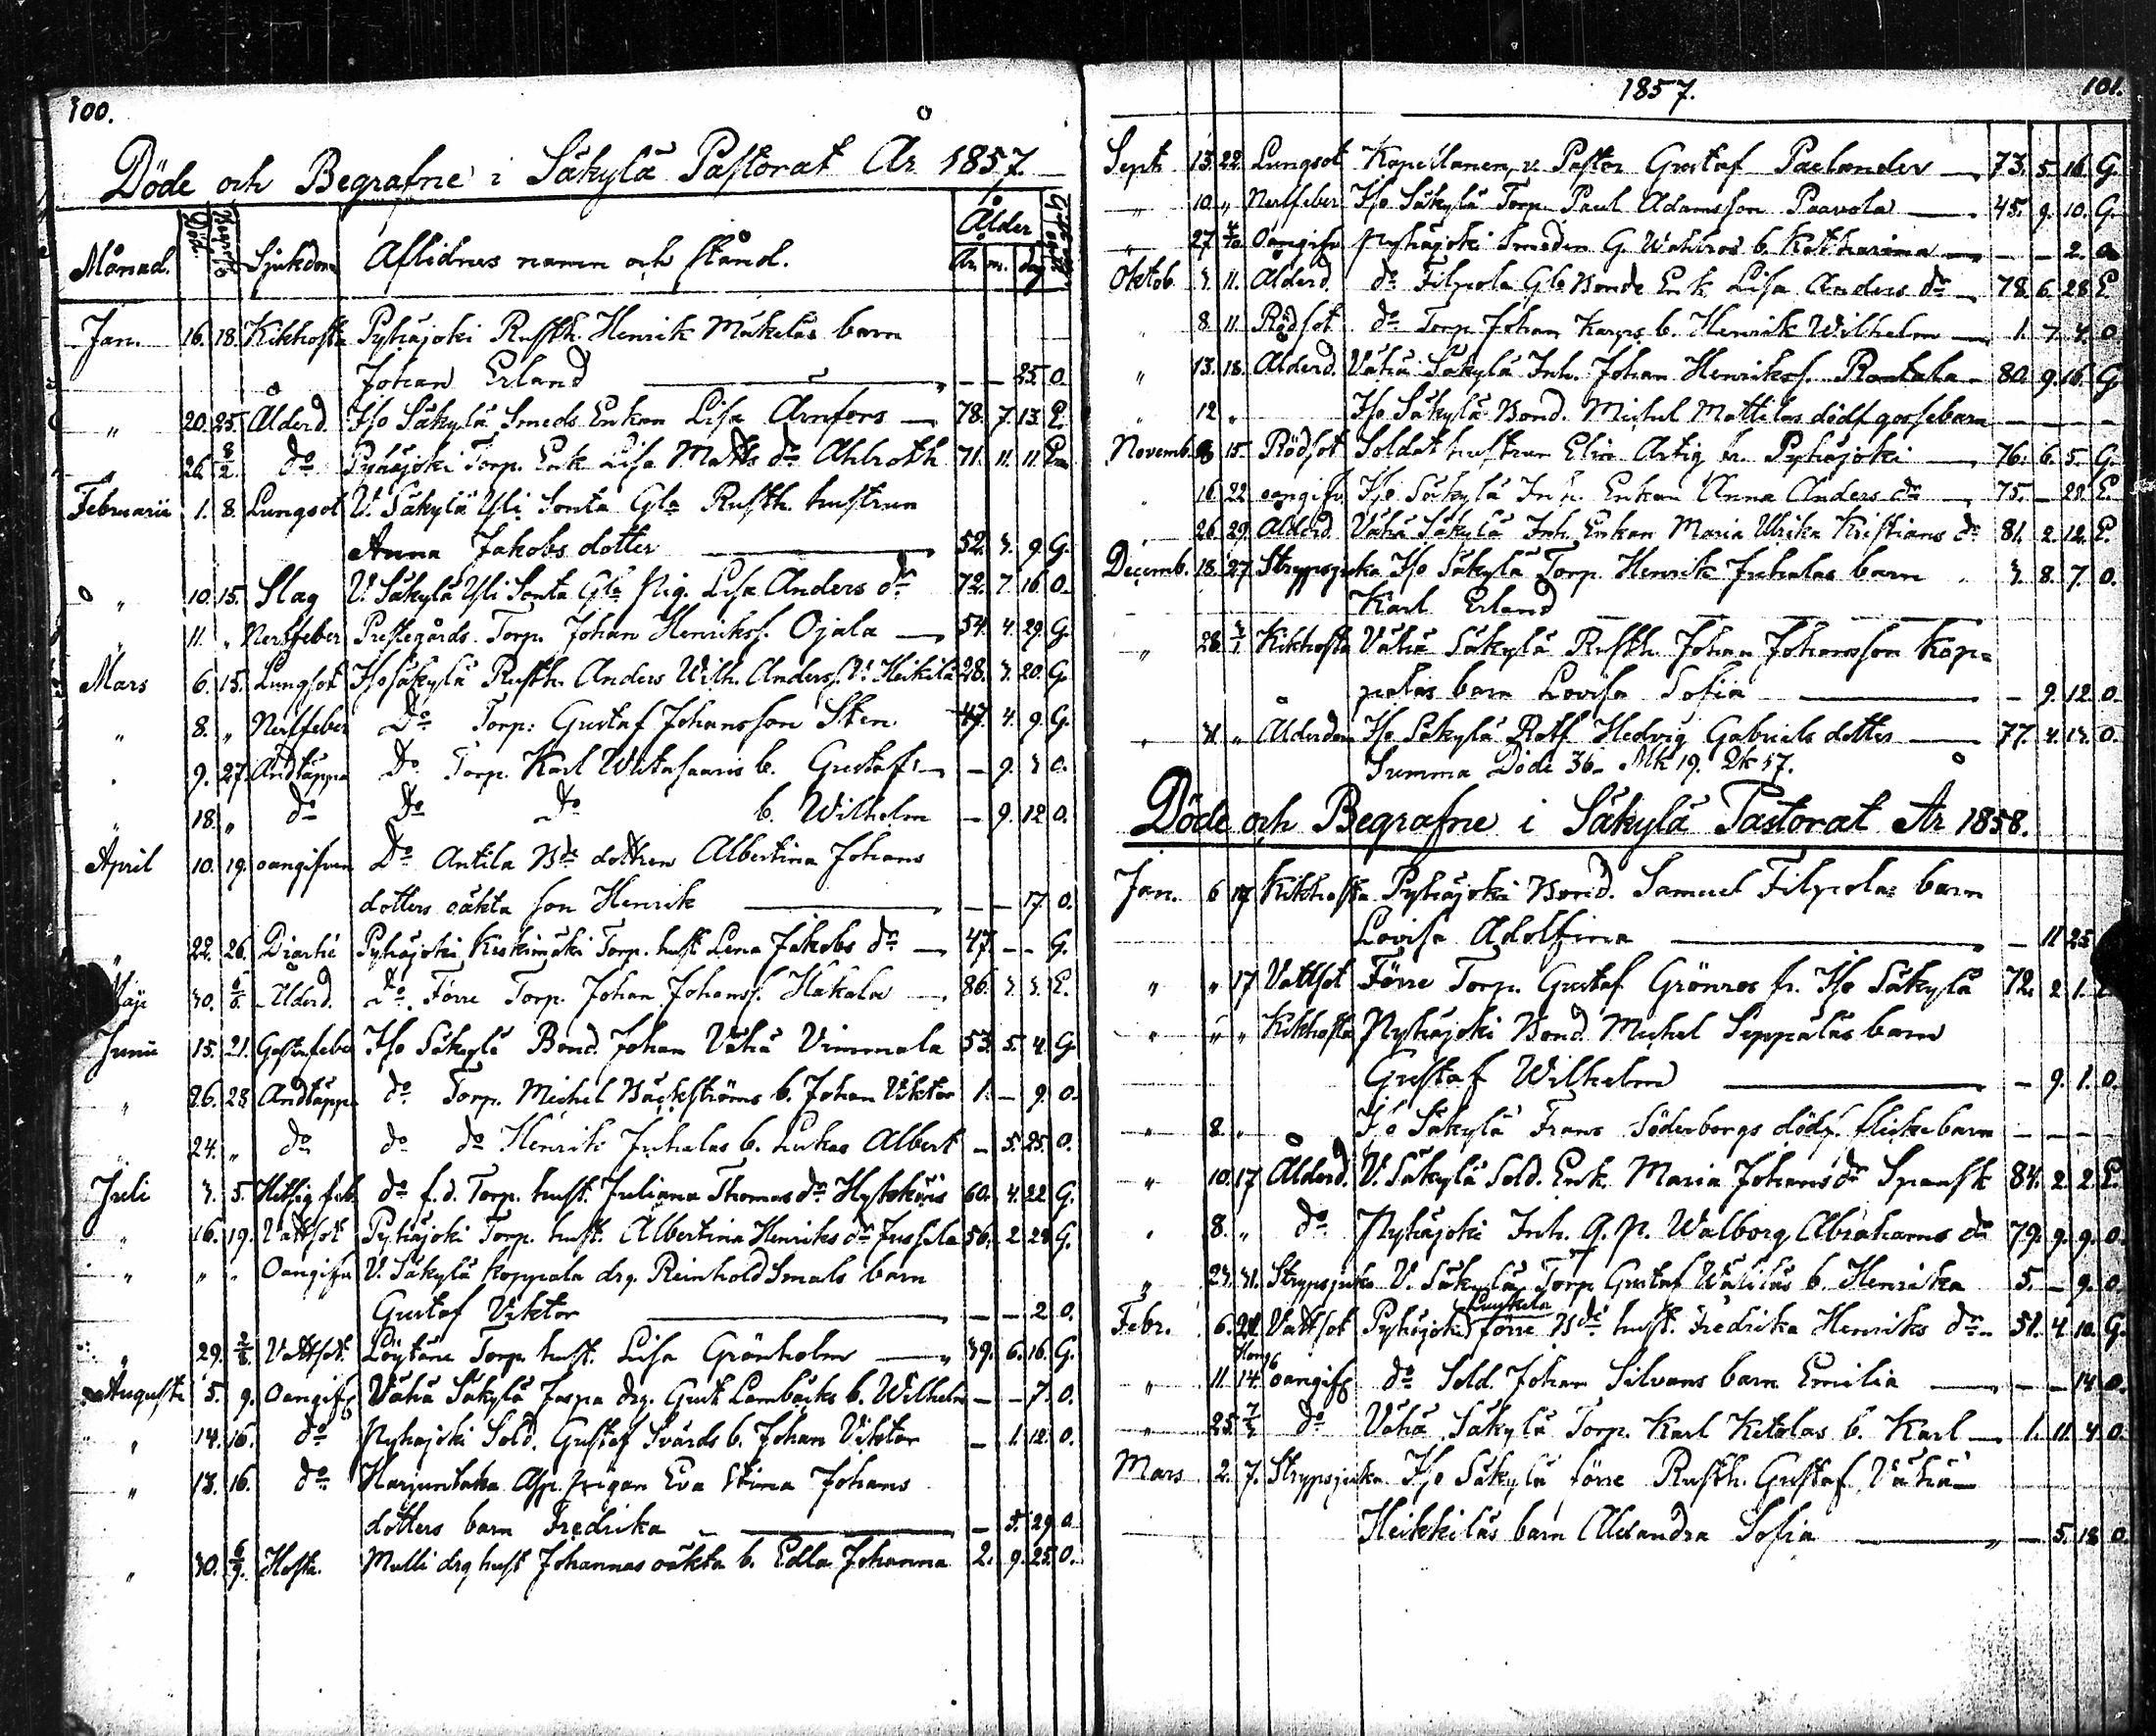 100.
Döde och Begrafne i Säkylä Pastorat År 1857.
Månad. Död. Begrafd. Sjukdom Aflidnes namn och stånd. Ålder År. m. dag.
Jan. 16. 18. Kikhosta Pyhäjoki Rusth. Henrik Mäkeläs barn
Johan Erland — — 25. O.
" 20. 25. Ålderd. Iso Säkylä Smeds Enkan Lisa Arnfors — 78. 7. 13. E.
" 26. 8/2 do Pyhäjoki Torp. Enk. Lisa Matts dr Ahlroth 71. 11. 11. E.
Februarii 1. 8. Lungsot V. Säkylä Yli Sonta Gla Rusth. hustrun
Anna Jakobs dotter — 52. 3. 9. G.
" 10. 15. Slag V. Säkylä Yli Sonta Gla Pig. Lisa Anders dr 72. 7. 16. O.
" 11. " Nerffeber Prestegårds Torp. Johan Henrikss. Ojala — 54. 4. 29. G.
Mars 6. 15. Lungsot Iso Säkylä Rusth. Anders Wilh. Anderss. V. Heikilä 28. 3. 20. G.
" 8. " Nerffeber Do Torp. Gustaf Johansson Sten 47. 4. 9. G.
" 9. 27. Andtäppa Do Torp. Karl b. Gustaf — — 9. 3. O.
" 18. " do Do Do b. Wilhelm — 9. 12. O.
April 10. 19. oangifven Do Antila Bds dottren Albertina Johans
dotters oäkta son Henrik — — — 17. O.
" 22. 26. Diarhé Pyhäjoki Torp. hust. Lena Jakobs dr — 47. — — G.
Maji 30. 6/6 Ålderd. Do Förre Torp. Johan Johanss. Hakala — 86. 3. 3. E.
Junii 15. 21. Iso Säkylä Bond. Johan Vähä Vimmala 53. 5. 4. G.
" 26. 28. Andtäppa do Torp. Michel Bäckströms b. Johan Viktor 1. — 9. O.
" 24. " do do do Henrik Juhalas b. Lukas Albert — 5. 25. O.
Juli 3. 5. Hetsig feb. do f.d. Torp. hust. Juliana Thomas dr 60. 4. 22. G.
" 16. 19. Vattsot Pyhäjoki Torp. hust. Albertina Henriks dr Jussila 56. 2. 28. G.
" " " Oangifn V. Säkylä Koppala drg. Reinhold Smals barn
Gustaf Viktor — — — 2. O.
" 29. 2/8 Vattsot. Löytäne Torp. hust. Lisa Grönholm — 39. 6. 16. G.
Augusti 5. 9. Oangif. Vähä Säkylä Jaspa drg. Gust. Lambäcks b. Wilhelm — — 7. O.
" 14. 16. do Pyhäjoki Sold. Gustaf Svärds b. Johan Viktor — 1. 12. O.
" 13. 16. do Harjuntaka pigan Eva Stina Johans
dotters barn Fredrika — — 5. 29. O.
" 30. 6/9. Hosta. Mulli drg hust Johannas oäkta b. Edla Johanna 2. 9. 25. O.
1857. 101.
Sept. 13. 22. Lungsot Kapellanen, v. Pastor Gustaf Paelander — 73. 5. 16. G.
" 10. " Nerffeber Iso Säkylä Torp. Paul Adamsson Paavola — 45. 9. 10. G.
" 27. 4/10 Oangifv. Pyhäjoki Smeden G. Wahlros b. Katharina — — — 2. O.
Oktob. 3. 11. Ålderd. do Filpola Gla Bonde Enk. Lisa Anders dr — 78. 6. 28. E.
" 8. 11. Rödsot do Torp. Johan Karps b. Henrik Wilhelm — 1. 7. 4. O.
" 13. 18. Ålderd. Vähä Säkylä Inh. Johan Henrikss. Rantala — 80. 9. 16. G.
" 12. " Iso Säkylä Bond. Michel Mattilas dödf. gossebarn — — —
Novemb. 8. 15. Rödsot Soldat hustrun Elin Artig fr. Pyhäjoki — 76. 6. 5. G.
" 16. 22. oangifv. Iso Säkylä Inh. Enkan Anna Anders dr — 75. — 28. E.
" 26. 29. Ålderd. Vähä Säkylä Inh. Enkan Maria Ulrika Kristians dr 81. 2. 12. E.
Decemb. 18. 27. Strypsjuka Iso Säkylä Torp. Henrik Juhalas barn 3. 8. 7. O.
Karl Erland
" 28. 3/1 Kikhosta Vähä Säkylä Rusth. Johan Johansson Kop-
palas barn Lovisa Sofia — — 9. 12. O.
" 31. " Ålderdom Iso Säkylä Hedvig Gabriels dotter — 77. 4. 13. O.
Summa Döde 36. Mk 19. Qk 17.
Döde och Begrafne i Säkylä Pastorat År 1858.
Jan. 6. 17. Kikhosta Pyhäjoki Bond. Samuel Filpolas barn
Lovisa Adolfina — — 11. 25.
" " 17. Vattsot Förre Torp. Gustaf Grönros fr. Iso Säkylä 72. 2. 1.
" " " Kikhosta Pyhäjoki Bond. Michel Seppäläs barn
Gustaf Wilhelm — — 9. 1. O.
" 8. " Iso Säkylä Frans Söderborgs dödf. flickebarn — — —
" 10. 17. Ålderd. V. Säkylä Sold. Enk. Maria Johans dr Spansk 84. 2. 2. E.
" 8. " do Pyhäjoki Inh. G. P. Walborg Abrahams dr 79. 9. 9. O.
" 23. 31. Strypsjuka V. Säkylä Torp. Gustaf b. Henrika 5. — 9. O.
Febr. 6. 21. Vattsot Pyhäjoki förre Bds hust. Fredrika Henriks dr. 51. 4. 10. G.
" 11. 14. oangif. do Sold. Johan Silvans barn Emilia — — — 14. O.
" 25. 7/3 do Vähä Säkylä Torp. Karl Ketolas b. Karl — 1. 11. 4. O.
Mars 2. 7. Strypsjuka Iso Säkylä förre Rusth. Gustaf Vähä
Heikkiläs barn Alexandra Sofia — — 5. 18. O.